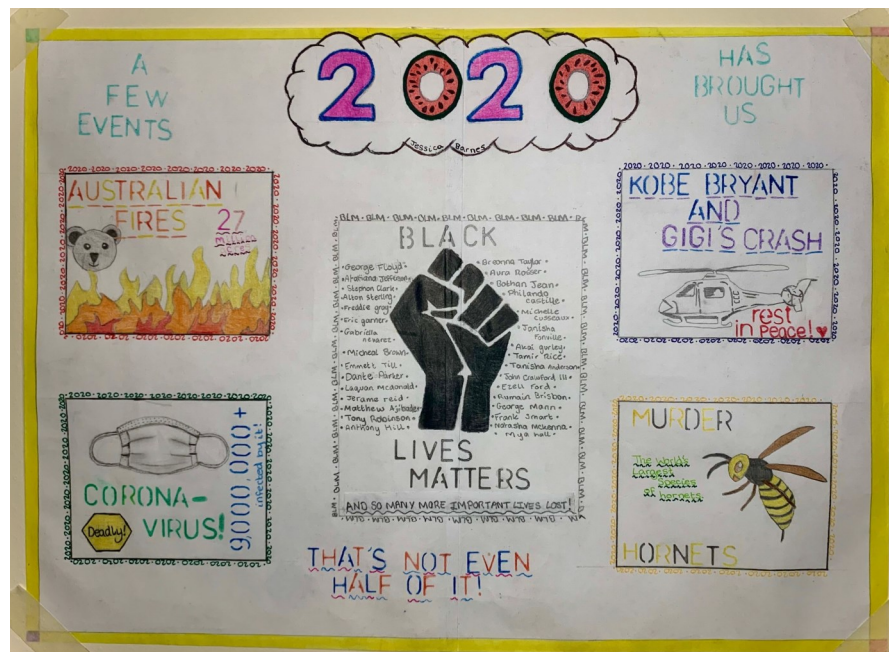 A
FEW
EVENTS
2020
Jessica Barnes
HAS
BROUGHT
US
AUSTRALIAN
FIRES 27
KOBE BRYANT
AND
GIGI'S CRASH
rest
in Peace!
BLM · BLM · BLM · BLM · BLM · BLM · BLM · BLM
BLACK
George Floyd
Stephon Clark
Alton Sterling
Freddie gray
Eric garner
Gabriella
nevarez
Micheal Brown
Emmett Till
Dante Parker
Laquan McDonald
Jerame reid
Matthew
Tony Robinson
Anthony Hill
Breonna Taylor
Aura Rosser
Bothan Jean
Philando
castille
Michelle
cusseaux
Janisha
Fonville
Akai gurley
Tamir Rice
Tanisha Anderson
John Crawford III
Ezell Ford
Rumain Brisbon
George Mann
Frank Smart
Natasha McKenna
Mya hall
LIVES
MATTERS
AND SO MANY MORE IMPORTANT LIVES LOST!
CORONA-
VIRUS!
Deadly!
9,000,000+
infected by it!
MURDER
The World's
Largest
Species
of hornets
HORNETS
THAT'S NOT EVEN
HALF OF IT!